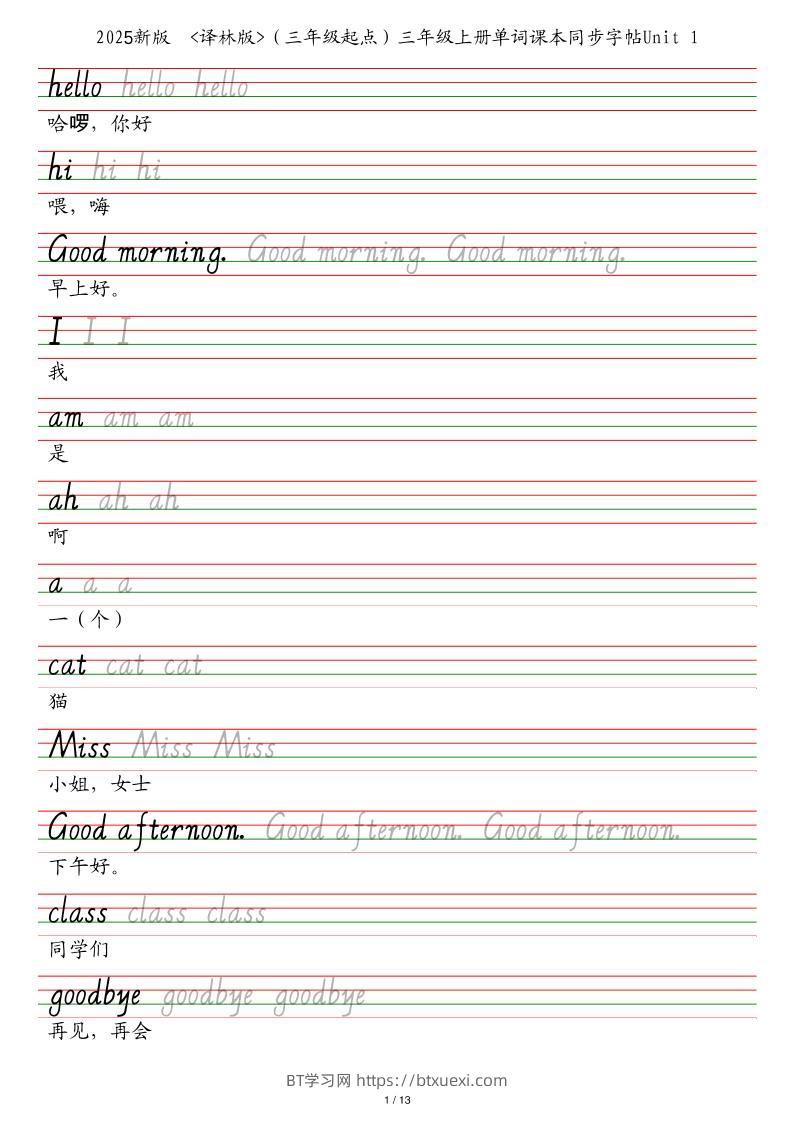 2025新版 <译林版>（三年级起点）三年级上册单词课本同步字帖Unit 1
hello hello hello
哈啰，你好
hi hi hi
喂，嗨
Good morning. Good morning. Good morning.
早上好。
I I I
我
am am am
是
ah ah ah
啊
a a a
一（个）
cat cat cat
猫
Miss Miss Miss
小姐，女士
Good afternoon. Good afternoon. Good afternoon.
下午好。
class class class
同学们
goodbye goodbye goodbye
再见，再会
BT学习网 https://btxuexi.com
1 / 13